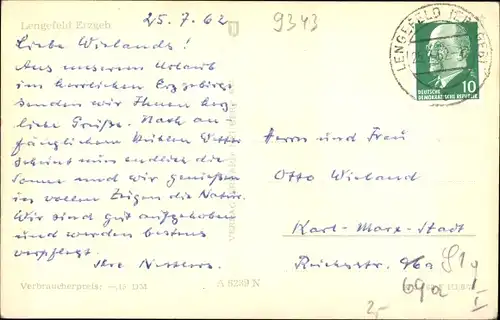 Lengefeld Erzgeb
25.7.62
9343
Liebe Wielands!
Aus unserem Urlaub
im herrlichen Erzgebirge
senden wir Ihnen herz
liche Grüße. Nach an
fänglichem kühlem Wetter
scheint nun endlich die
Sonne und wir genießen
in vollen Zügen die Natur.
Wir sind gut aufgehoben
und werden bestens
verpflegt.
Ihre
Verbraucherpreis: DM
A 8239 N
LENGEFELD (ERZGEB)
10
DEUTSCHE
DEMOKRATISCHE REPUBLIK
Herrn und Frau
Otto Wieland
Karl-Marx-Stadt
69a
I
2,-